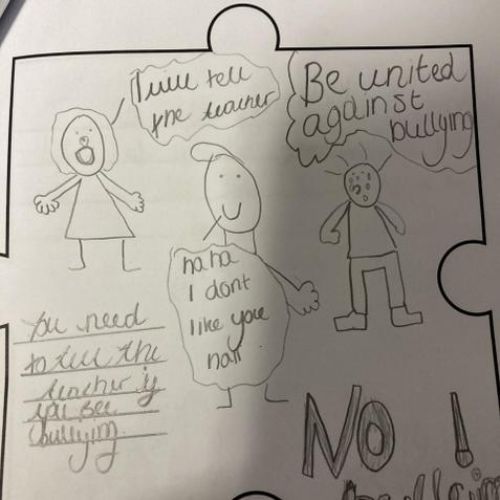 I will tell
the teacher
Be united
against
bullying
haha
I dont
like you
hair
You need
to tell the
teacher if
you see
bullying.
NO !
bullying